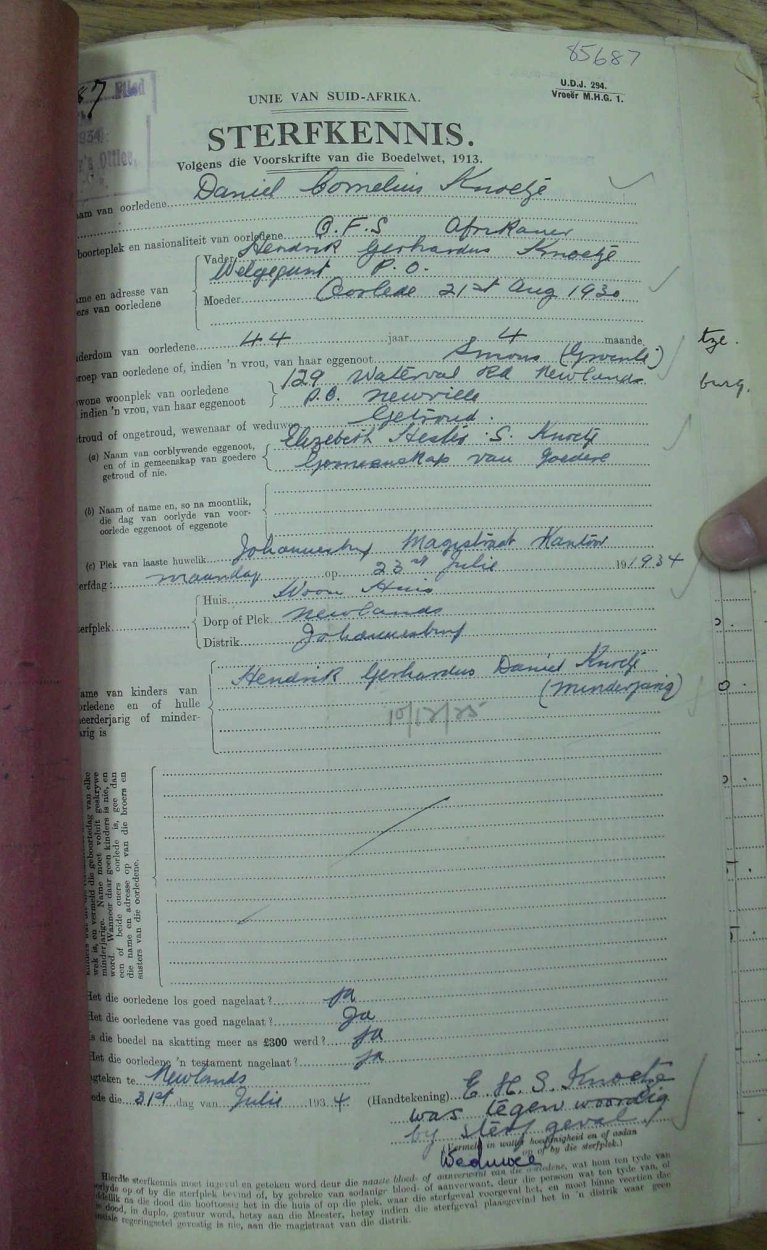 85687
U.D.J. 294.
Vroeër M.H.G. 1.
87
Filed
1934
's Office,
UNIE VAN SUID-AFRIKA.
STERFKENNIS.
Volgens die Voorskrifte van die Boedelwet, 1913.
am van oorledene Daniel Cornelius Knoetje
boorteplek en nasionaliteit van oorledene O.F.S Afrikaner
me en adresse van ers van oorledene
Vader Hendrik Gerhardus Knoetje
Welgegunt P.O.
Moeder Oorlede 21st Aug 1930
derdom van oorledene 44 jaar 4 maande
roep van oorledene of, indien 'n vrou, van haar eggenoot Smous (Groente)
wone woonplek van oorledene indien 'n vrou, van haar eggenoot
129 Waterval Rd Newlands
P.O. Newville
troud of ongetroud, wewenaar of weduwee Getroud.
(a) Naam van oorblywende eggenoot, en of in gemeenskap van goedere getroud of nie.
Elizabeth Hester S. Knoetje
Gemeenskap van Goedere
(b) Naam of name en, so na moontlik, die dag van oorlyde van vooroorlede eggenoot of eggenote
(c) Plek van laaste huwelik Johannesburg Magistraat Kantoor
erfdag: maandag op 23st Julie 191934
erfplek
Huis Woon Huis
Dorp of Plek Newlands
Distrik Johannesburg
ame van kinders van
orledene en of hulle
meerderjarig of minder-
arig is
Hendrik Gerhardus Daniel Knoetje
(Minderjarig)
10/12/25
wek is, en vermeld die geboortedag van elke
minderjarige. Name moet voluit geskrywe
word. Wanneer daar geen kinders is nie, en
een of beide ouers oorlede is, gee dan
die name en adresse op van die broers en
susters van die oorledene.
Het die oorledene los goed nagelaat? Ja
Het die oorledene vas goed nagelaat? Ja
Is die boedel na skatting meer as £300 werd? Ja
Het die oorledene 'n testament nagelaat? Ja
gteken te Newlands
ede die 31st dag van Julie 1934
(Handtekening) E H. S. Knoetje
was tegenwoordig
by sterfgeval
(Vermeld in watter hoedanigheid en of aldan
of by die sterfplek.)
Weduwee
Hierdie sterfkennis moet ingevul en geteken word deur die naaste bloed- of aanverwant van die oorledene, wat hom ten tyde van
orlyde op of by die sterfplek bevind of, by gebreke van sodanige bloed- of aanverwant, deur die persoon wat ten tyde van, of
ddellik na die dood die hooftoesig het in die huis of op die plek, waar die sterfgeval voorgeval het, en moet binne veertien die
e dood, in duplo, gestuur word, hetsy aan die Meester, hetsy indien die sterfgeval plaasgevind het in 'n distrik waar geen
regeringsetel gevestig is nie, aan die magistraat van die distrik.
tze.
burg.